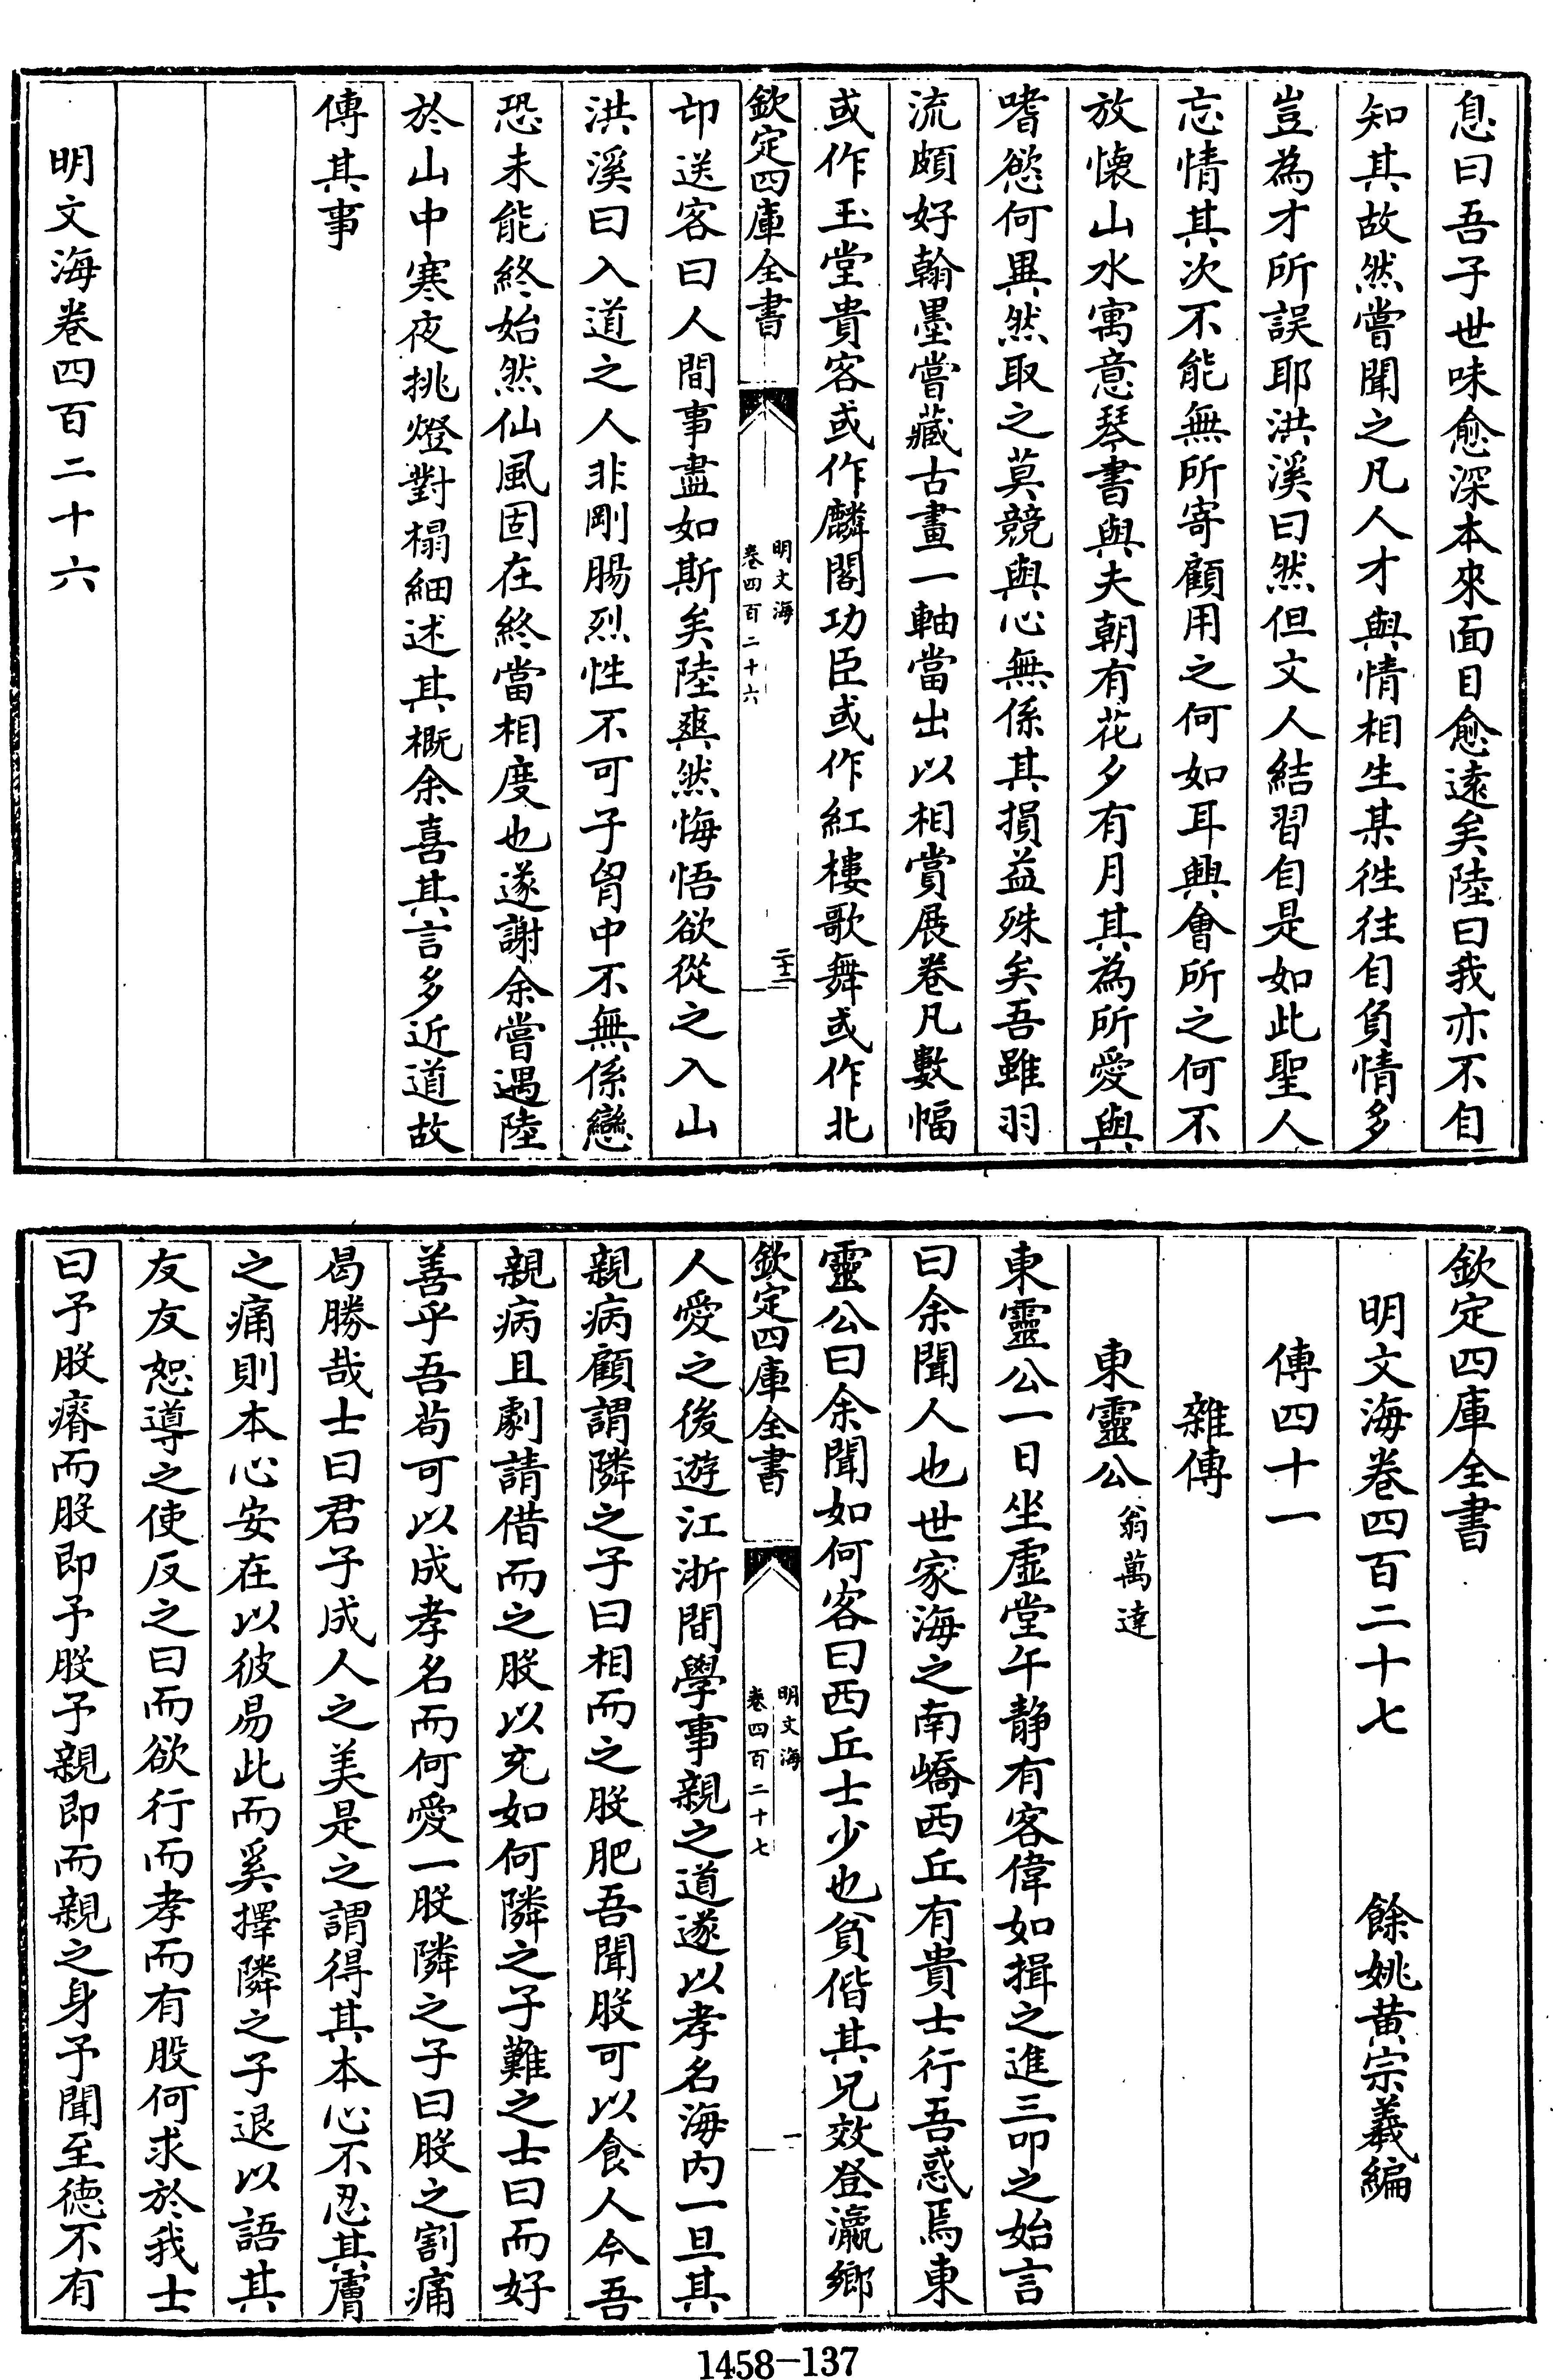 息曰吾子世味愈深本來面目愈遠矣陸曰我亦不自
知其故然嘗聞之凡人才與情相生某徃往自負情多
豈為才所誤耶洪溪曰然但文人結習自是如此聖人
忘情其次不能無所寄顧用之何如耳興會所之何不
放懷山水寓意琴書與夫朝有花夕有月其為所愛與
嗜慾何異然取之莫競與心無係其損益殊矣吾雖羽
流頗好翰墨嘗藏古畫一軸當出以相賞展卷凡數幅
或作玉堂貴客或作麟閣功臣或作紅樓歌舞或作北
欽定四庫全書
明文海
卷四百二十六
二十三
邙送客曰人間事盡如斯矣陸爽然悔悟欲從之入山
洪溪曰入道之人非剛腸烈性不可子胷中不無係戀
恐未能終始然仙風固在終當相度也遂謝余嘗遇陸
於山中寒夜挑燈對榻細述其概余喜其言多近道故
傳其事
明文海卷四百二十六
欽定四庫全書
明文海卷四百二十七 餘姚黃宗羲編
傳四十一
雜傳
東靈公 翁萬達
東靈公一日坐虛堂午静有客偉如揖之進三叩之始言
曰余聞人也世家海之南嶠西丘有貴士行吾惑焉東
靈公曰余聞如何客曰西丘士少也貧偕其兄效登瀛鄉
欽定四庫全書
明文海
卷四百二十七
一
人愛之後遊江浙間學事親之道遂以孝名海内一旦其
親病顧謂隣之子曰相而之股肥吾聞股可以食人今吾
親病且劇請借而之股以充如何隣之子難之士曰而好
善乎吾茍可以成孝名而何愛一股隣之子曰股之割痛
曷勝哉士曰君子成人之美是之謂得其本心不忍其膚
之痛則本心安在以彼易此而奚擇隣之子退以語其
友友恕導之使反之曰而欲行而孝而有股何求於我士
曰予股瘠而股即予股予親即而親之身予聞至德不有
1458-137